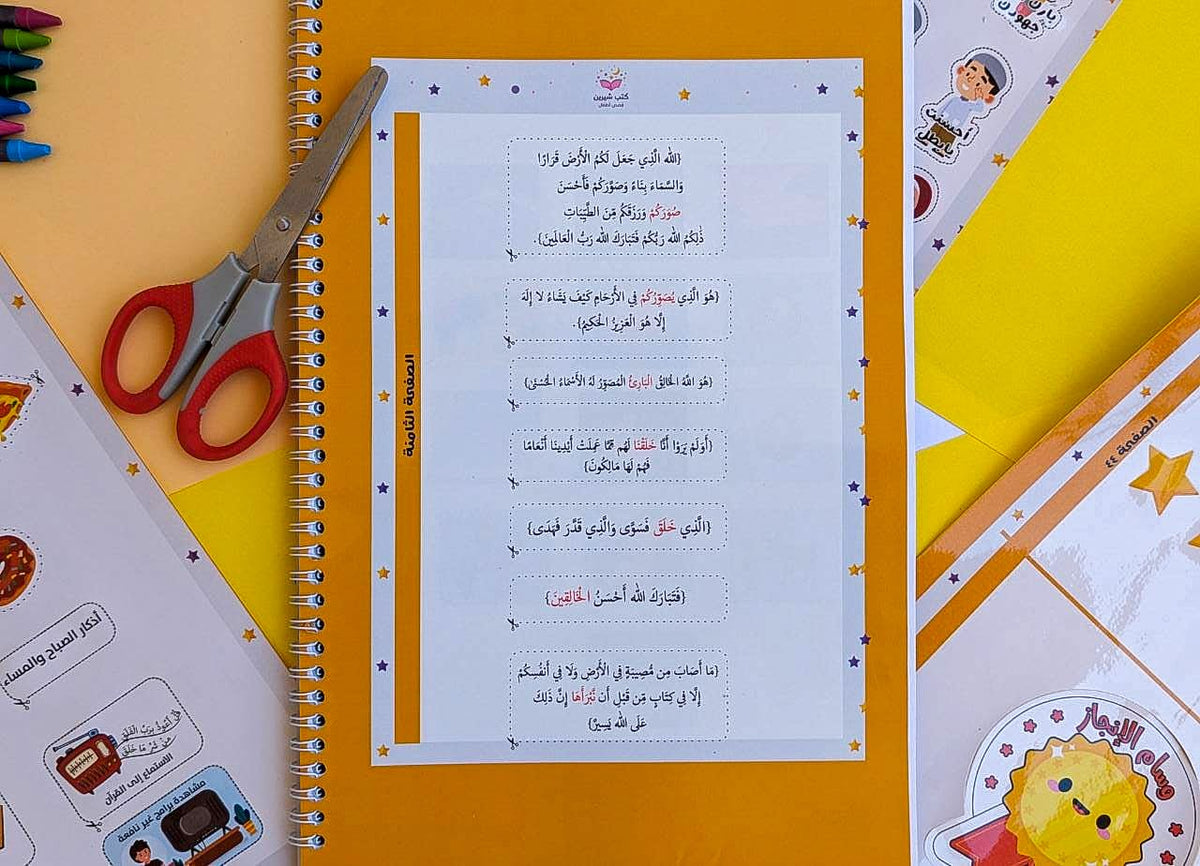 كتب شيرين
قصص أطفال
{الله الَّذِي جَعَلَ لَكُمُ الأَرْضَ قَرَارًا
وَالسَّمَاءَ بِنَاءً وَصَوَّرَكُمْ فَأَحْسَنَ
صُوَرَكُمْ وَرَزَقَكُم مِّنَ الطَّيِّبَاتِ
ذَٰلِكُمُ الله رَبُّكُمْ فَتَبَارَكَ الله رَبُّ الْعَالَمِينَ}.
{هُوَ الَّذِي يُصَوِّرُكُمْ فِي الأَرْحَامِ كَيْفَ يَشَاءُ لا إِلَهَ
إِلَّا هُوَ الْعَزِيزُ الْحَكِيمُ}.
{هُوَ اللَّهُ الخَالِقُ الْبَارِئُ الْمُصَوِّرُ لَهُ الأَسْمَاءُ الْحُسْنَىٰ}
{أَوَلَمْ يَرَوْا أَنَّا خَلَقْنَا لَهُم مِّمَّا عَمِلَتْ أَيْدِينَا أَنْعَامًا
فَهُمْ لَهَا مَالِكُونَ}
{الَّذِي خَلَقَ فَسَوَّى وَالَّذِي قَدَّرَ فَهَدَى}
{فَتَبَارَكَ الله أَحْسَنُ الْخَالِقِينَ}
{مَا أَصَابَ مِن مُّصِيبَةٍ فِي الأَرْضِ وَلَا فِي أَنفُسِكُمْ
إِلَّا فِي كِتَابٍ مِّن قَبْلِ أَن نَّبْرَأَهَا إِنَّ ذَلِكَ
عَلَى الله يَسِيرٌ}
الصفحة الثامنة
بارك
جهودك
أحسنت
يا بطل
الصفحة ٤٤
وسام الإنجاز
أذكار الصباح والمساء
قُلْ أَعُوذُ بِرَبِّ الْفَلَقِ
مِن شَرِّ مَا خَلَقَ
الاستماع إلى القرآن
مشاهدة برامج غير نافعة